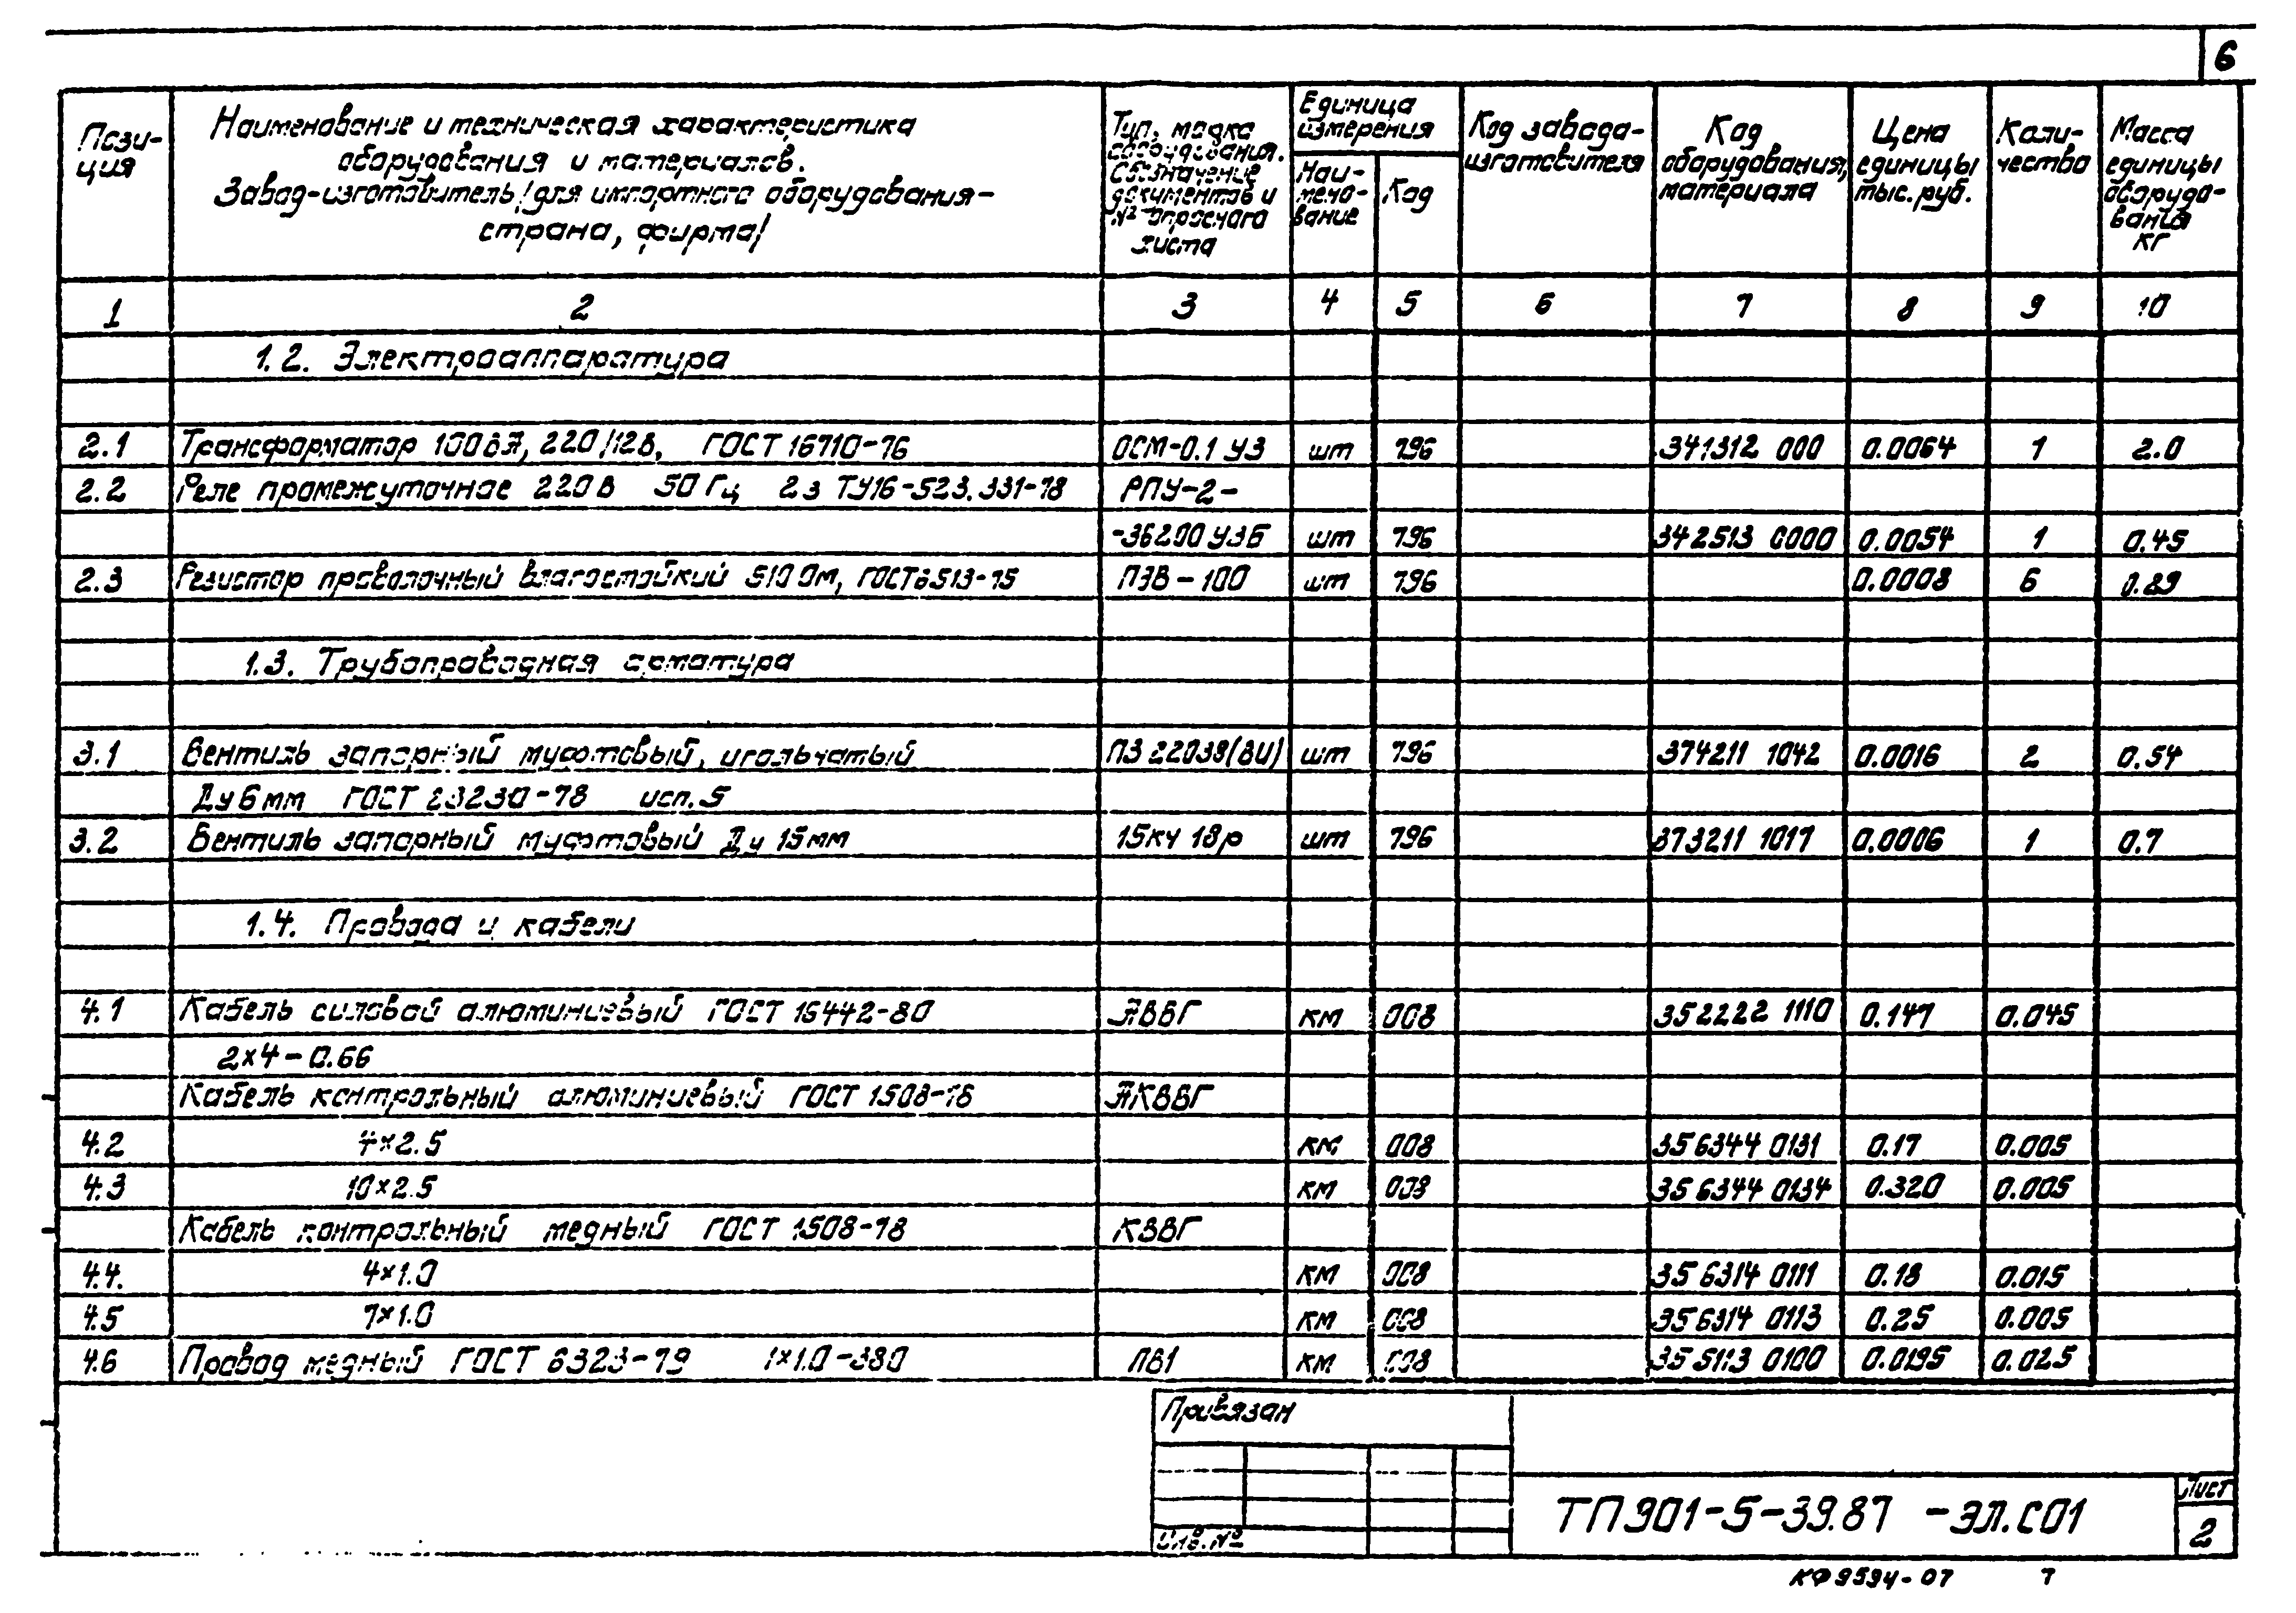 6
Пози-
ция
Наименование и техническая характеристика
оборудования и материалов.
Завод-изготовитель/для импортного оборудования-
страна, фирма/
Тип, марка
оборудования.
обозначение
документов и
№ опросного
листа
Единица
измерения
Наи-
мено-
вание
Код
Код завода-
изготовителя
Код
оборудования,
материала
Цена
единицы
тыс. руб.
Коли-
чество
Масса
единицы
оборудо-
вания
кг
1 2 3 4 5 6 7 8 9 10
1.2. Электроаппаратура
2.1 Трансформатор 100ВА, 220/12В, ГОСТ 16710-76 ОСМ-0.1 У3 шт 796 341312 000 0.0064 1 2.0
2.2 Реле промежуточное 220В 50Гц 2з ТУ16-523.331-78 РПУ-2-
-36200У3Б шт 796 342513 0000 0.0054 1 0.45
2.3 Резистор проволочный влагостойкий 510 Ом, ГОСТ6513-75 ПЭВ-100 шт 796 0.0008 6 0.29
1.3. Трубопроводная арматура
3.1 Вентиль запорный муфтовый, игольчатый ПЗ 22038(ВИ) шт 796 374211 1042 0.0016 2 0.54
Ду6мм ГОСТ 23230-78 исп.5
3.2 Вентиль запорный муфтовый Ду 15мм 15кч 18р шт 796 373211 1017 0.0006 1 0.7
1.4. Провода и кабели
4.1 Кабель силовой алюминиевый ГОСТ 16442-80 АВВГ км 008 352222 1110 0.147 0.045
2×4-0.66
Кабель контрольный алюминиевый ГОСТ 1508-78 АКВВГ
4.2 4×2.5 км 008 356344 0131 0.17 0.005
4.3 10×2.5 км 008 356344 0134 0.320 0.005
Кабель контрольный медный ГОСТ 1508-78 КВВГ
4.4. 4×1.0 км 008 356314 0111 0.18 0.015
4.5 7×1.0 км 008 356314 0113 0.25 0.005
4.6 Провод медный ГОСТ 6323-79 1×1.0-380 ПВ1 км 008 355113 0100 0.0195 0.025
Привязан
Инв.№
ТП901-5-39.87 -ЭЛ.СО1
Лист
2
КФ9594-07 7